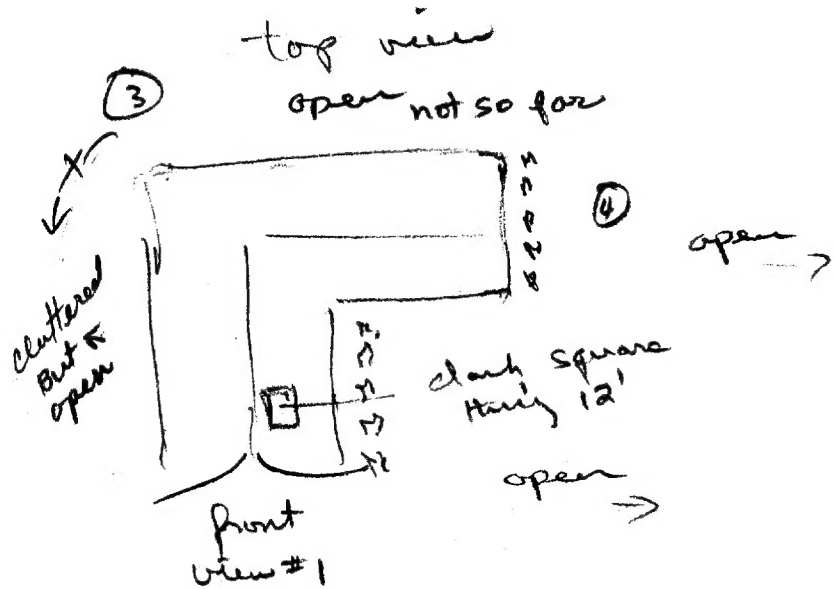 top view
3
open not so far
4
open
cluttered
But
open
dark square
12'
open
front
view #1